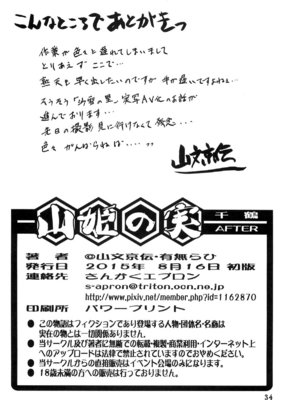 こんなところであとがきっ
作業が色々と遅れてしまいまして
とりあえずここで…
新天も早く出したいのですが 仲が遅いですよねぇ…
そうそう「山姫の実」実写AV化のお話が
進んでおります…
先日の撮影見に行けなくて残念…
色々がんばらねば…‥〃
山文京伝
山姫の実
千鶴
AFTER
著者 ©山文京伝・有無らひ
発行日 2015年 8月16日 初版
連絡先 さんかくエプロン
s-apron@triton.ocn.ne.jp
http://www.pixiv.net/member.php?id=1162870
印刷所 パワープリント
● この物語はフィクションであり登場する人物・団体名・名商は
実在の物とは一切関係ありません。
● 当サークル及び著者に無断での転載・複製・商業利用・インターネット上
へのアップロードは法律で禁止されていますのでおやめください。
● 当サークルからの直接販売はイベント会場のみになります。
● 18歳未満の方への販売は行っておりません。
34